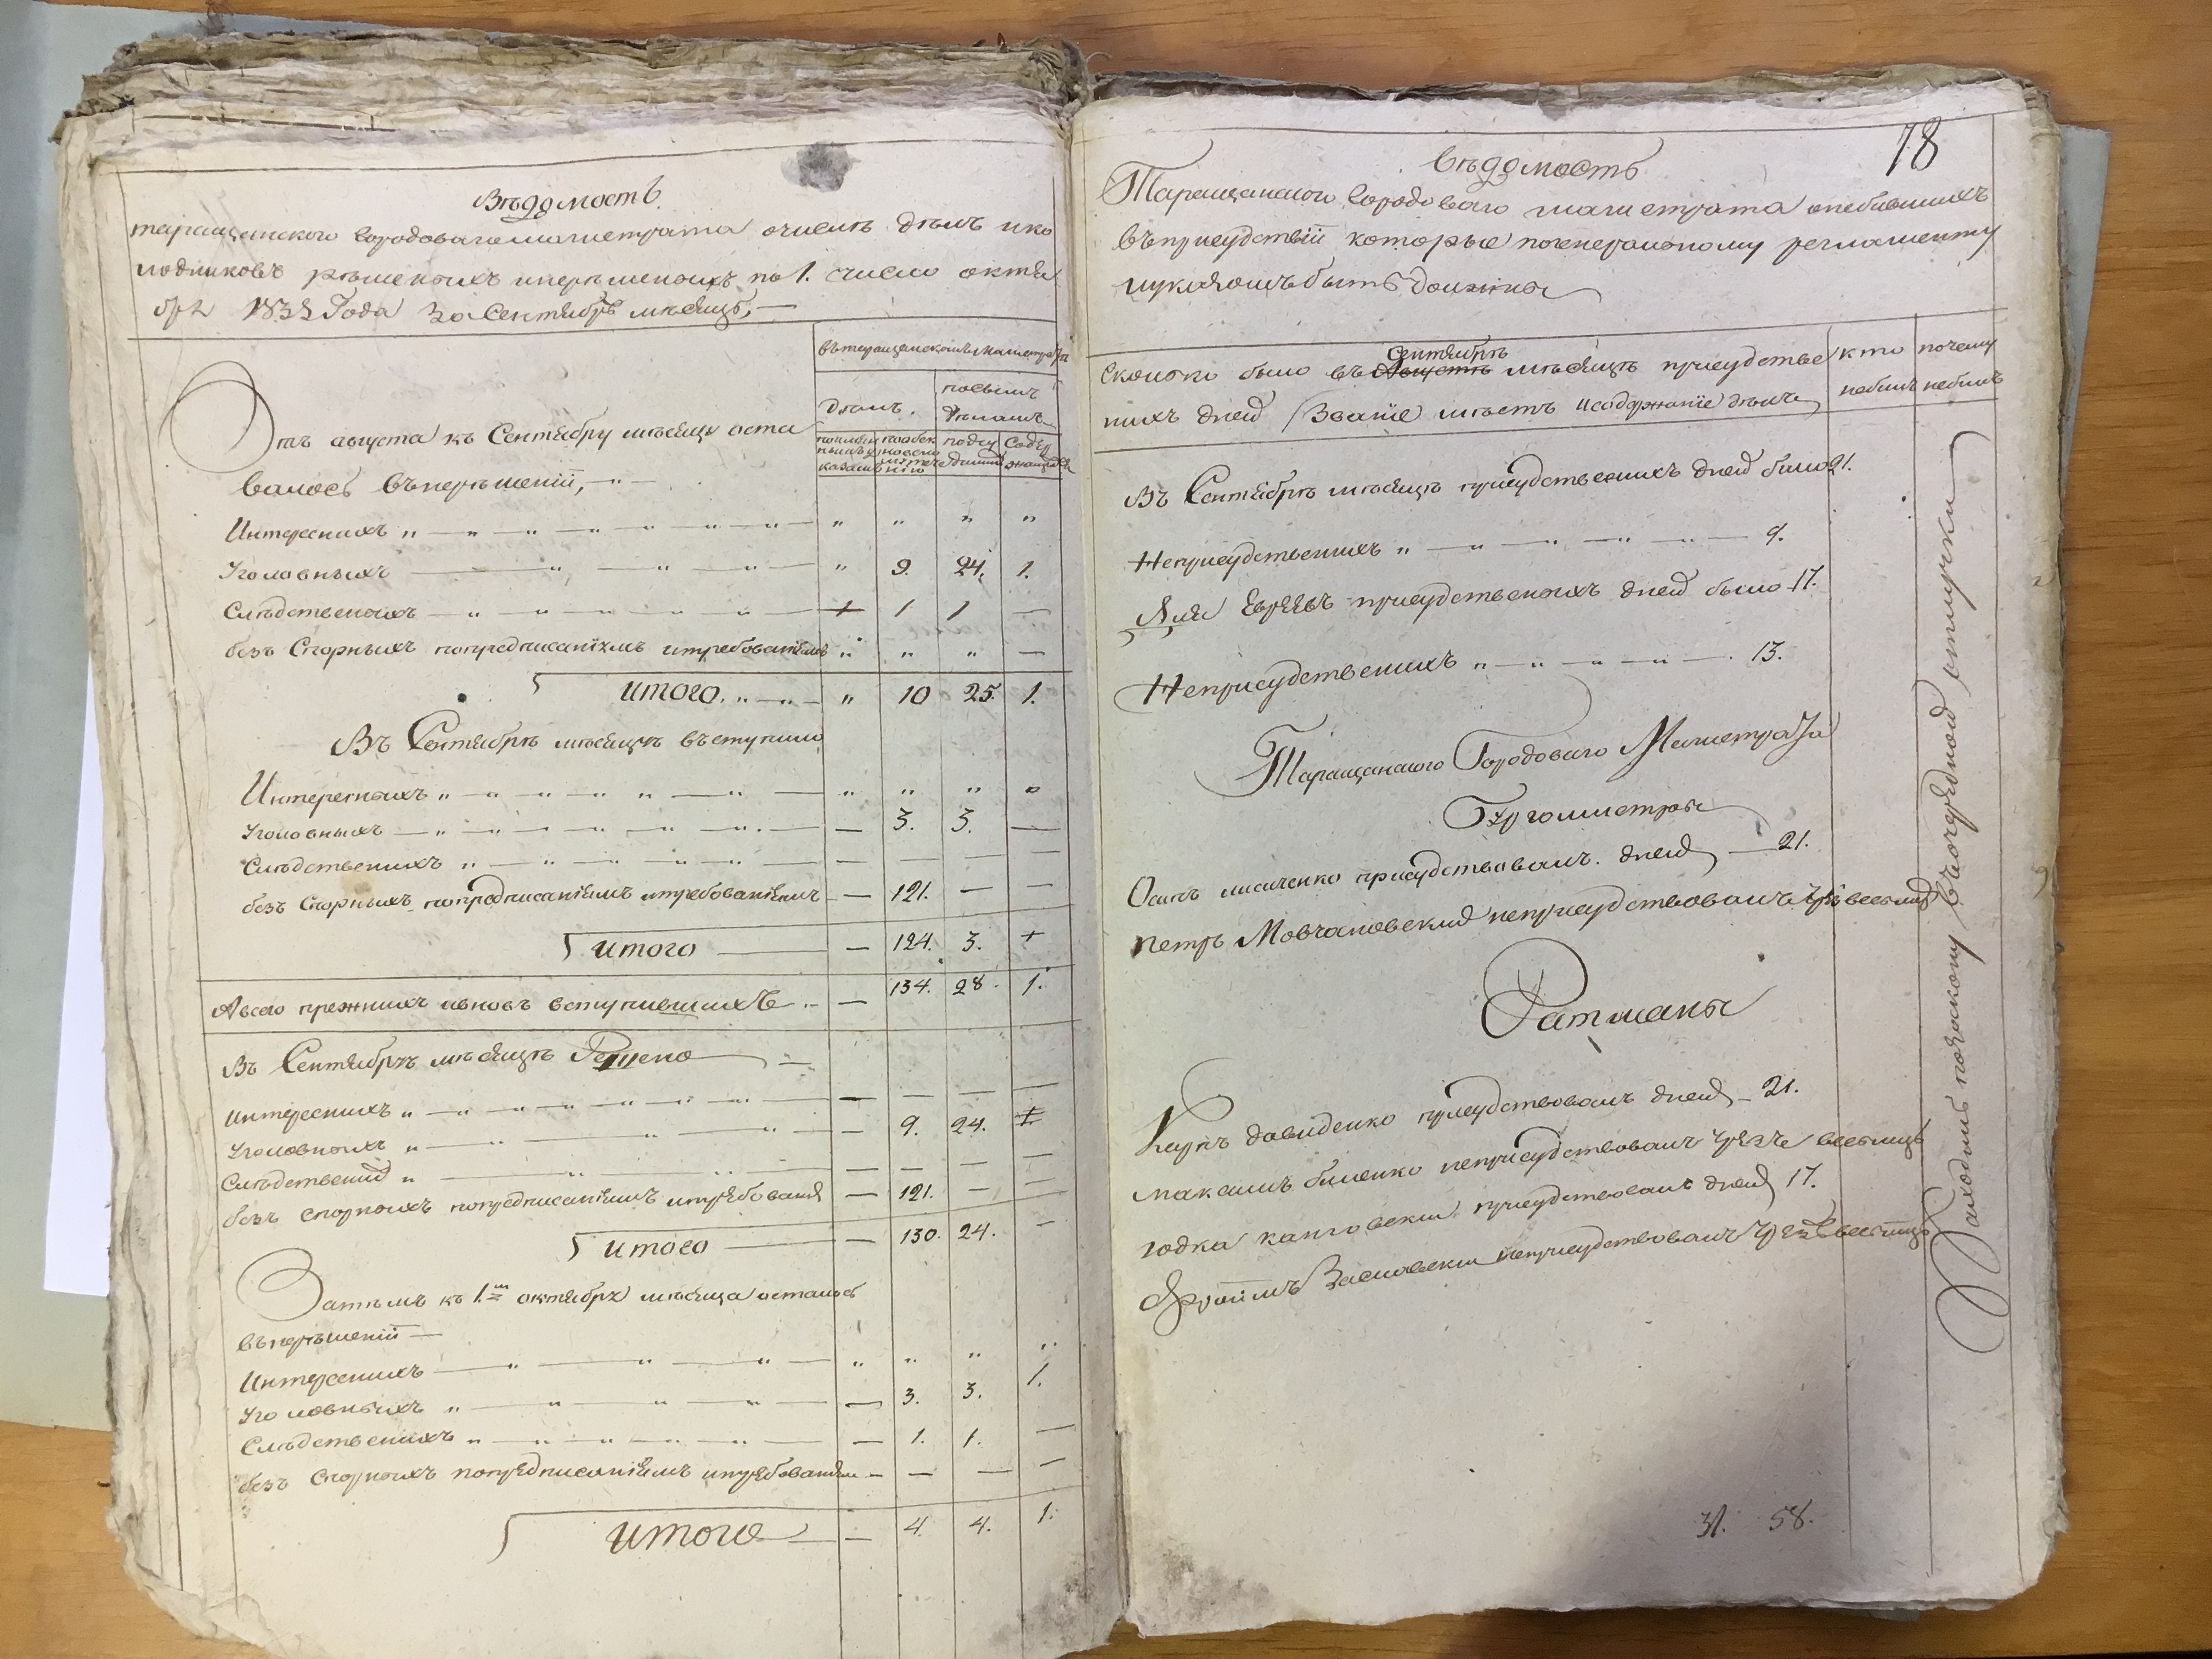 Вѣдомость.
таращанского городоваго магистрата очислѣ дѣлъ ико
лодниковъ рѣшеныхъ инерѣшеныхъ по 1. число октя
бря Года за Сентябрь мѣсяцъ,
вътаращанскомъ магистра
дѣлъ.
посимъ дѣламъ
подсу
содер
Отъ августа къ Сентябру мѣсяцу оста
валось вънерѣшеніи, „ —
Интереснихъ „ „ „ „ „
Уголовныхъ „ 9. 24. 1.
Слѣдственыхъ — 1 1 —
безъ Спорныхъ попредписаніямъ итребованіямъ „ „ „ —
итого. „ 10 25. 1.
Въ Сентябрѣ мѣсяцѣ въступило
Интересныхъ „ „ „ „ „
Уголовныхъ — 3. 3. —
Слѣдственихъ „ — — — —
безъ Спорныхъ попредписаніямъ итребованіямъ — 121. — —
итого — 124. 3. +
Авсего прежнихъ ивновъ вступившихъ — 134. 28. 1.
Въ Сентябрѣ мѣсяцѣ Решено —
интереснихъ „ — — — —
Уголовныхъ „ — 9. 24.
Слѣдствений „ — — — —
безъ спорныхъ попредписаніямъ итребованя — 121. — —
итого — 130. 24. —
Затѣмъ къ 1. октября мѣсяца осталось
вънерѣшеніи —
Интереснихъ — „ „ „ „
Уголовныхъ „ — 3. 3. 1.
Слѣдственихъ „ — 1. 1. —
безъ Спорныхъ попредписаніямъ итребованям — — — —
итого — 4. 4. 1.
78
вѣдомость
Таращанского городоваго магистрата онебившихъ
въприсудствіи которые погенеральному регламенту
иуказомъ быть должны
Сентябрѣ
Сколко было въ Августѣ мѣсяцѣ присудстве кто почему
нихъ дней Званіе мѣстъ исодержаніе дѣлъ небилъ небилъ
Въ Сентябрѣ мѣсяцѣ присудственихъ дней било 21.
Неприсудственихъ „ — 9.
Для Евреевъ присудственыхъ дней было 17.
Неприсудственихъ „ — 13.
Таращанского Городоваго Магистрата
Бургомистры
Осипъ лисиченко присудствовалъ. дней — 21.
петръ Мовчановский неприсудствовалъ
Ратманы
Карпъ давиденко присудствовалъ дней — 21.
максимъ биленко неприсудствовалъ чрезъ весьмиць
йодка каниовский присудствовалъ дней 17.
Фроимъ Заславский неприсудствовалъ чрезъ весьмиць
Находилъ въочередной отпуски
31. 58.